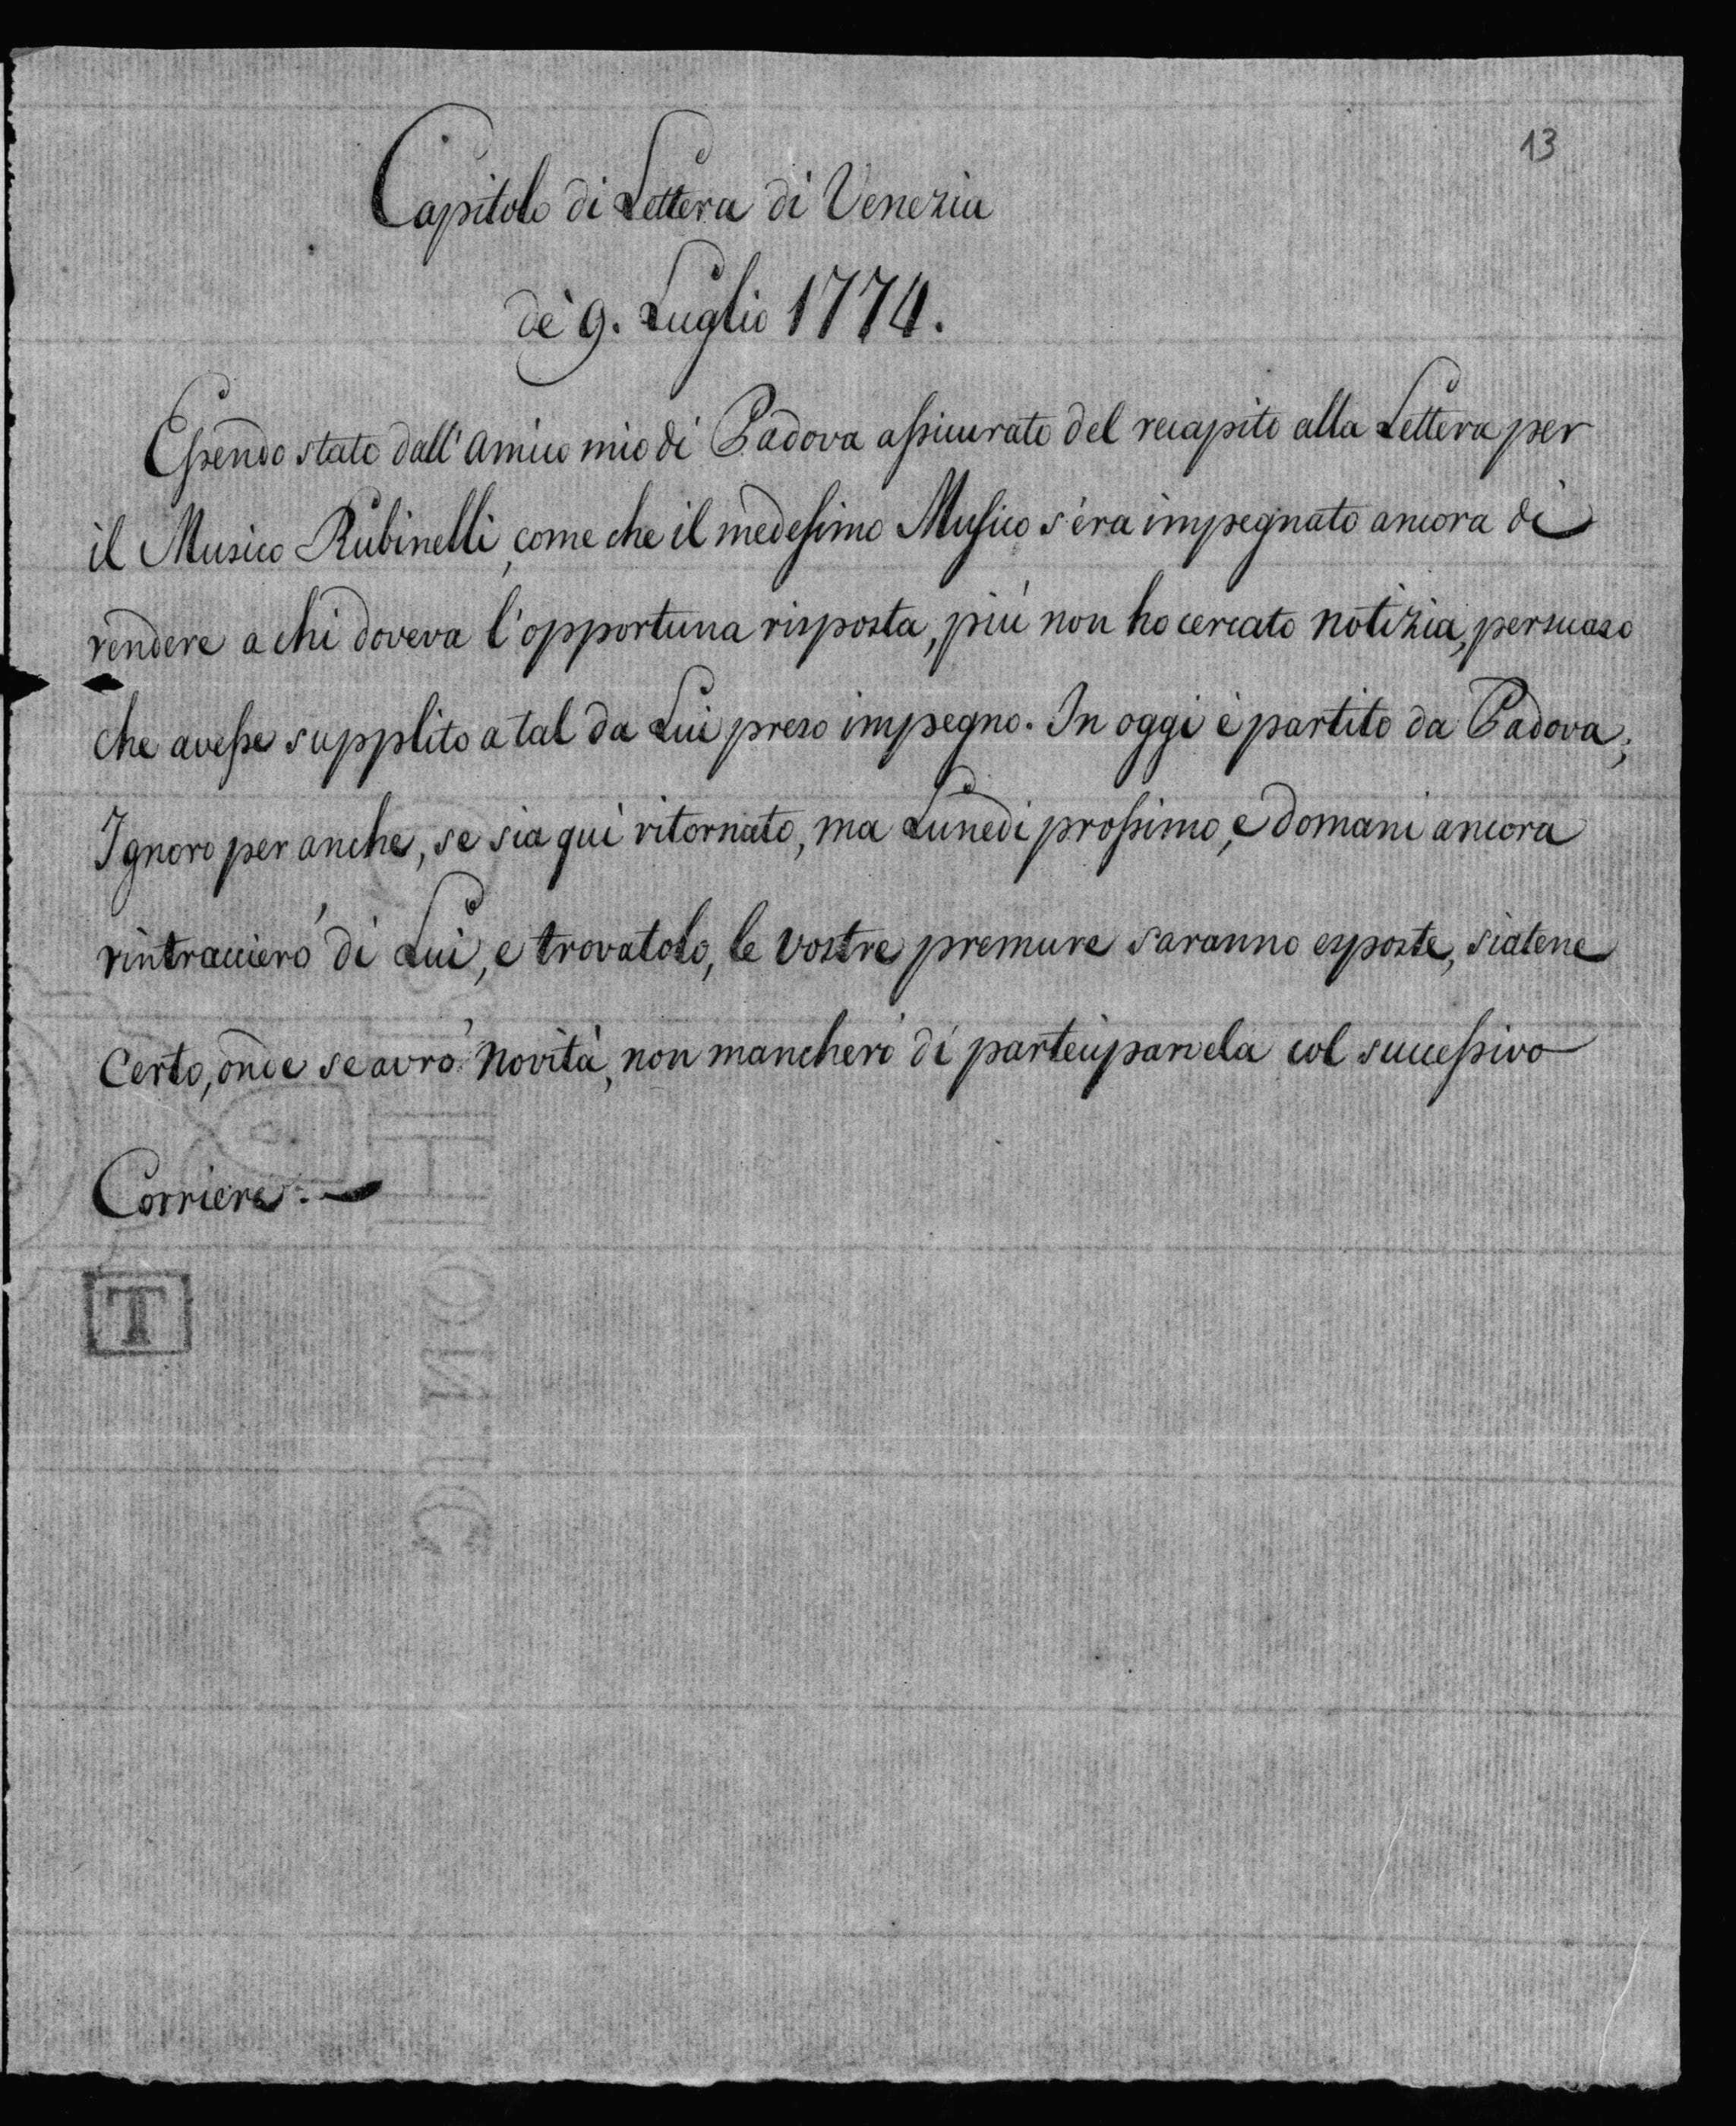 13
Capitolo di Lettera di Venezia
dè 9. Luglio 1774.
Essendo stato dall' Amico mio di Padova assicurato del recapito alla Lettera per
il Musico Rubinelli, come che il medesimo Musico s'era impegnato ancora di
rendere a chi doveva l'opportuna risposta, più non ho cercato notizia, persuaso
che avesse supplito a tal da Lui preso impegno. In oggi è partito da Padova;
Ignoro per anche, se sia quì ritornato, ma Lunedì prossimo, e domani ancora
rintraccierò di Lui, e trovatolo, le vostre premure saranno esposte, siatene
Certo, onde se avrò novità, non mancherò di parteciparvela col successivo
Corriere.
T